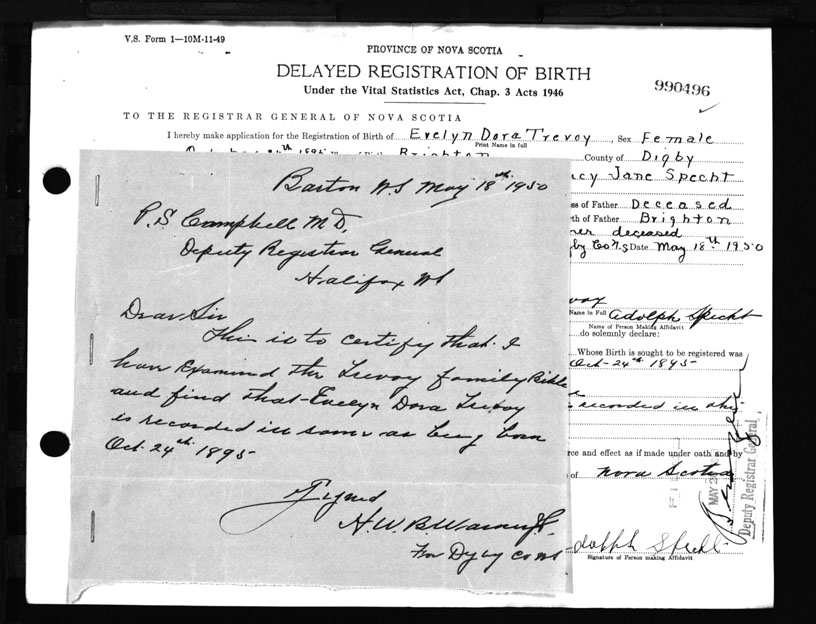 V.S. Form 1—10M-11-49
PROVINCE OF NOVA SCOTIA
DELAYED REGISTRATION OF BIRTH
Under the Vital Statistics Act, Chap. 3 Acts 1946
990496
TO THE REGISTRAR GENERAL OF NOVA SCOTIA
I hereby make application for the Registration of Birth of Evelyn Dora Trevoy, Sex Female
Print Name in full
Brighton County of Digby
Barton N.S May 18th 1950
P.S. Campbell M.D.
Deputy Registrar General
Halifax NS
Dear Sir
This is to certify that I
have Examined the Trevoy family Bible
and find that Evelyn Dora Trevoy
is recorded in same as being born
Oct. 24th 1895
Signed
H.W.B. J.P.
For Digby Co NS
cy Jane Specht
ss of Father Deceased
th of Father Brighton
er deceased
by Co N.S Date May 18th 1950
voy
Name in Full Adolph Specht
Name of Person Making Affidavit
do solemnly declare:
Whose Birth is sought to be registered was
Oct-24th 1895
recorded in this
rce and effect as if made under oath and by
of Nova Scotia
MAY
Deputy Registrar General
dolph Specht
Signature of Person making Affidavit